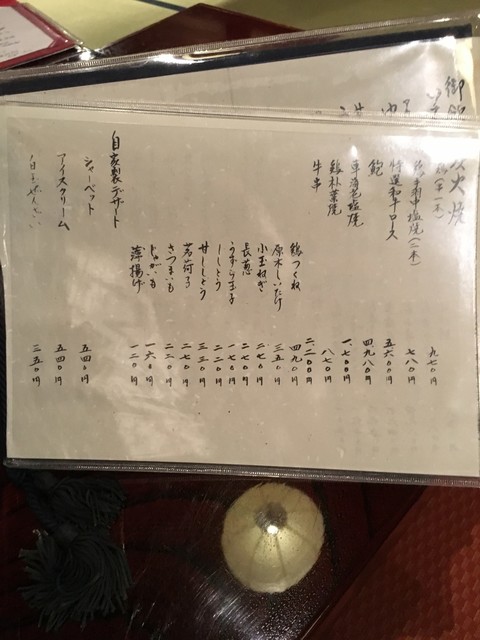 火焼
手羽中塩焼(二本) 七八〇円
特選和牛ロース 五六〇〇円
鮑 四、九八〇円
車海老塩焼 一、七〇〇円
鶏朴葉焼 八七〇円
牛串 二、二〇〇円
鶏つくね 四九〇円
原木しいたけ 三五〇円
小玉ねぎ 二七〇円
長葱 二二〇円
うずら玉子 一七〇円
ししとう 二二〇円
甘ししとう 三三〇円
茗荷 二七〇円
さつまいも 二二〇円
じゃがいも 一六〇円
薄揚げ 一二〇円
自家製デザート
シャーベット 五四〇円
アイスクリーム 五四〇円
白玉ぜんざい 三五〇円